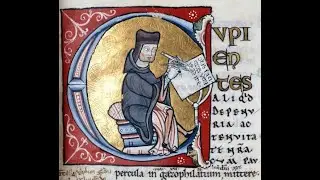 CUPI
EN
TES
ALIQ'D
DEPENU
RIA AC
TENUITA
TE NRA
CUM PAU
percula in gazophilatium mittere